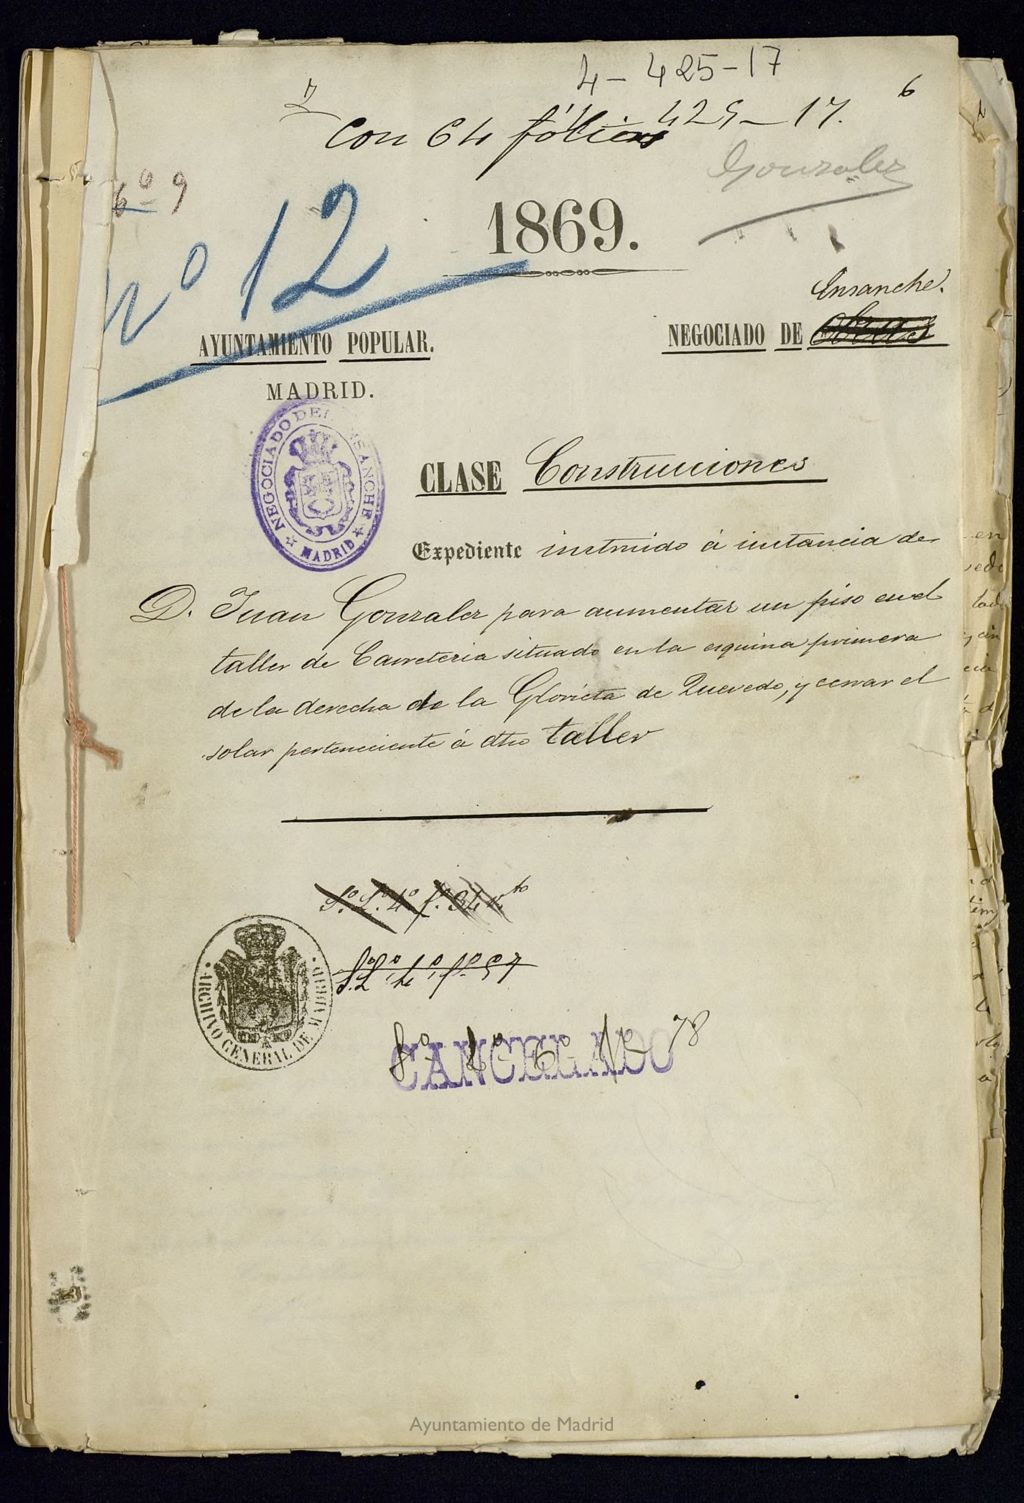 4 - 425 - 17
6
Con 64 folios 425 - 17.
Gonzalez
6º 9
nº 12
1869.
Ensanche.
AYUNTAMIENTO POPULAR.
NEGOCIADO DE Obras
MADRID.
NEGOCIADO DEL ENSANCHE
MADRID
CLASE Construcciones
Expediente instruido á instancia de
D. Juan Gonzalez para aumentar un piso en el
taller de Carreteria situado en la esquina primera
de la derecha de la Glorieta de Quevedo, y cerrar el
solar perteneciente á dho taller
Sº Lº 4º fº 34 vto
S. Lº 4º fº 57
ARCHIVO GENERAL DE MADRID
Sº Lº 6º fº 78
CANCELADO
Ayuntamiento de Madrid